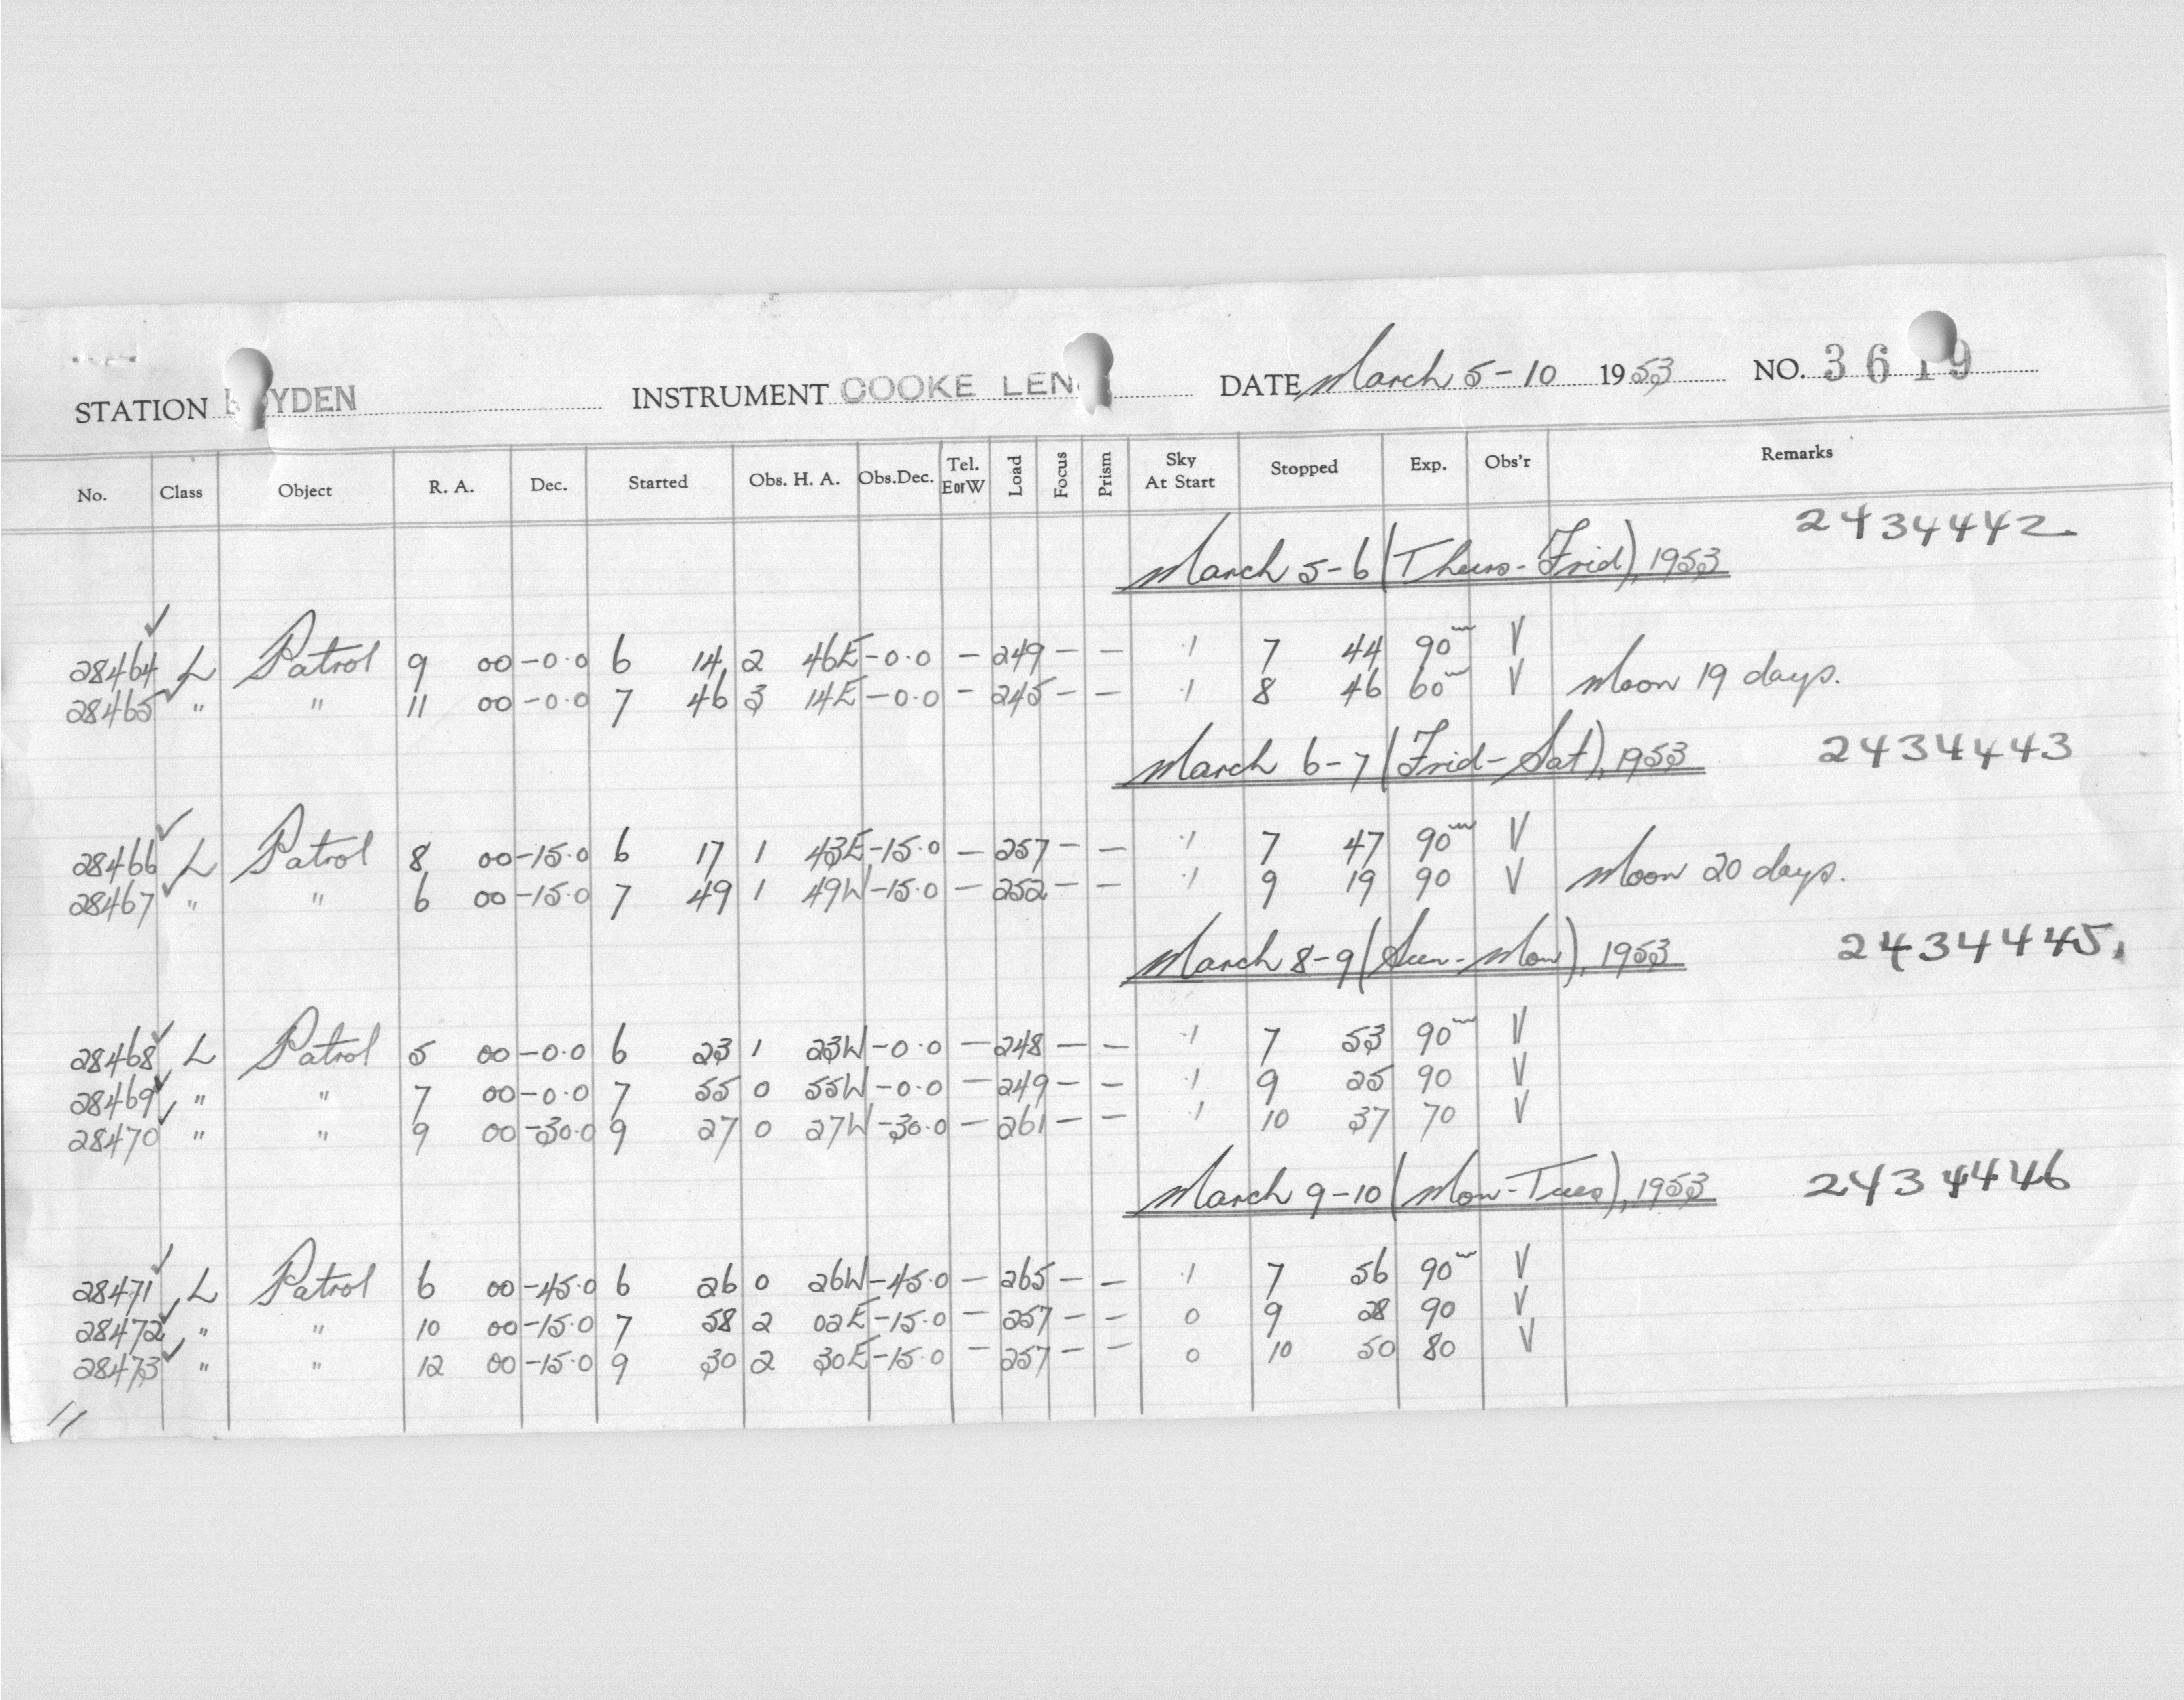 STATION BOYDEN INSTRUMENT COOKE LENS DATE March 5-10 1953 NO. 3619
No. Class Object R. A. Dec. Started Obs. H. A. Obs.Dec. Tel. E or W Load Focus Prism Sky At Start Stopped Exp. Obs'r Remarks
2434442
March 5-6 (Thurs-Frid), 1953
28464 L Patrol 9 00 -0.0 6 14 2 46E -0.0 - 249 - - .1 7 44 90m V
28465 " " 11 00 -0.0 7 46 3 14E -0.0 - 245 - - .1 8 46 60m V Moon 19 days.
March 6-7 (Frid-Sat), 1953 2434443
28466 L Patrol 8 00 -15.0 6 17 1 43E -15.0 - 257 - - .1 7 47 90m V
28467 " " 6 00 -15.0 7 49 1 49W -15.0 - 252 - - .1 9 19 90 V Moon 20 days.
March 8-9 (Sun-Mon), 1953 2434445.
28468 L Patrol 5 00 -0.0 6 23 1 23W -0.0 - 248 - - .1 7 53 90m V
28469 " " 7 00 -0.0 7 55 0 55W -0.0 - 249 - - .1 9 25 90 V
28470 " " 9 00 -30.0 9 27 0 27W -30.0 - 261 - - .1 10 37 70 V
March 9-10 (Mon-Tues), 1953 2434446
28471 L Patrol 6 00 -45.0 6 26 0 26W -45.0 - 265 - - .1 7 56 90m V
28472 " " 10 00 -15.0 7 58 2 02E -15.0 - 257 - - 0 9 28 90 V
28473 " " 12 00 -15.0 9 30 2 30E -15.0 - 257 - - 0 10 50 80 V
11